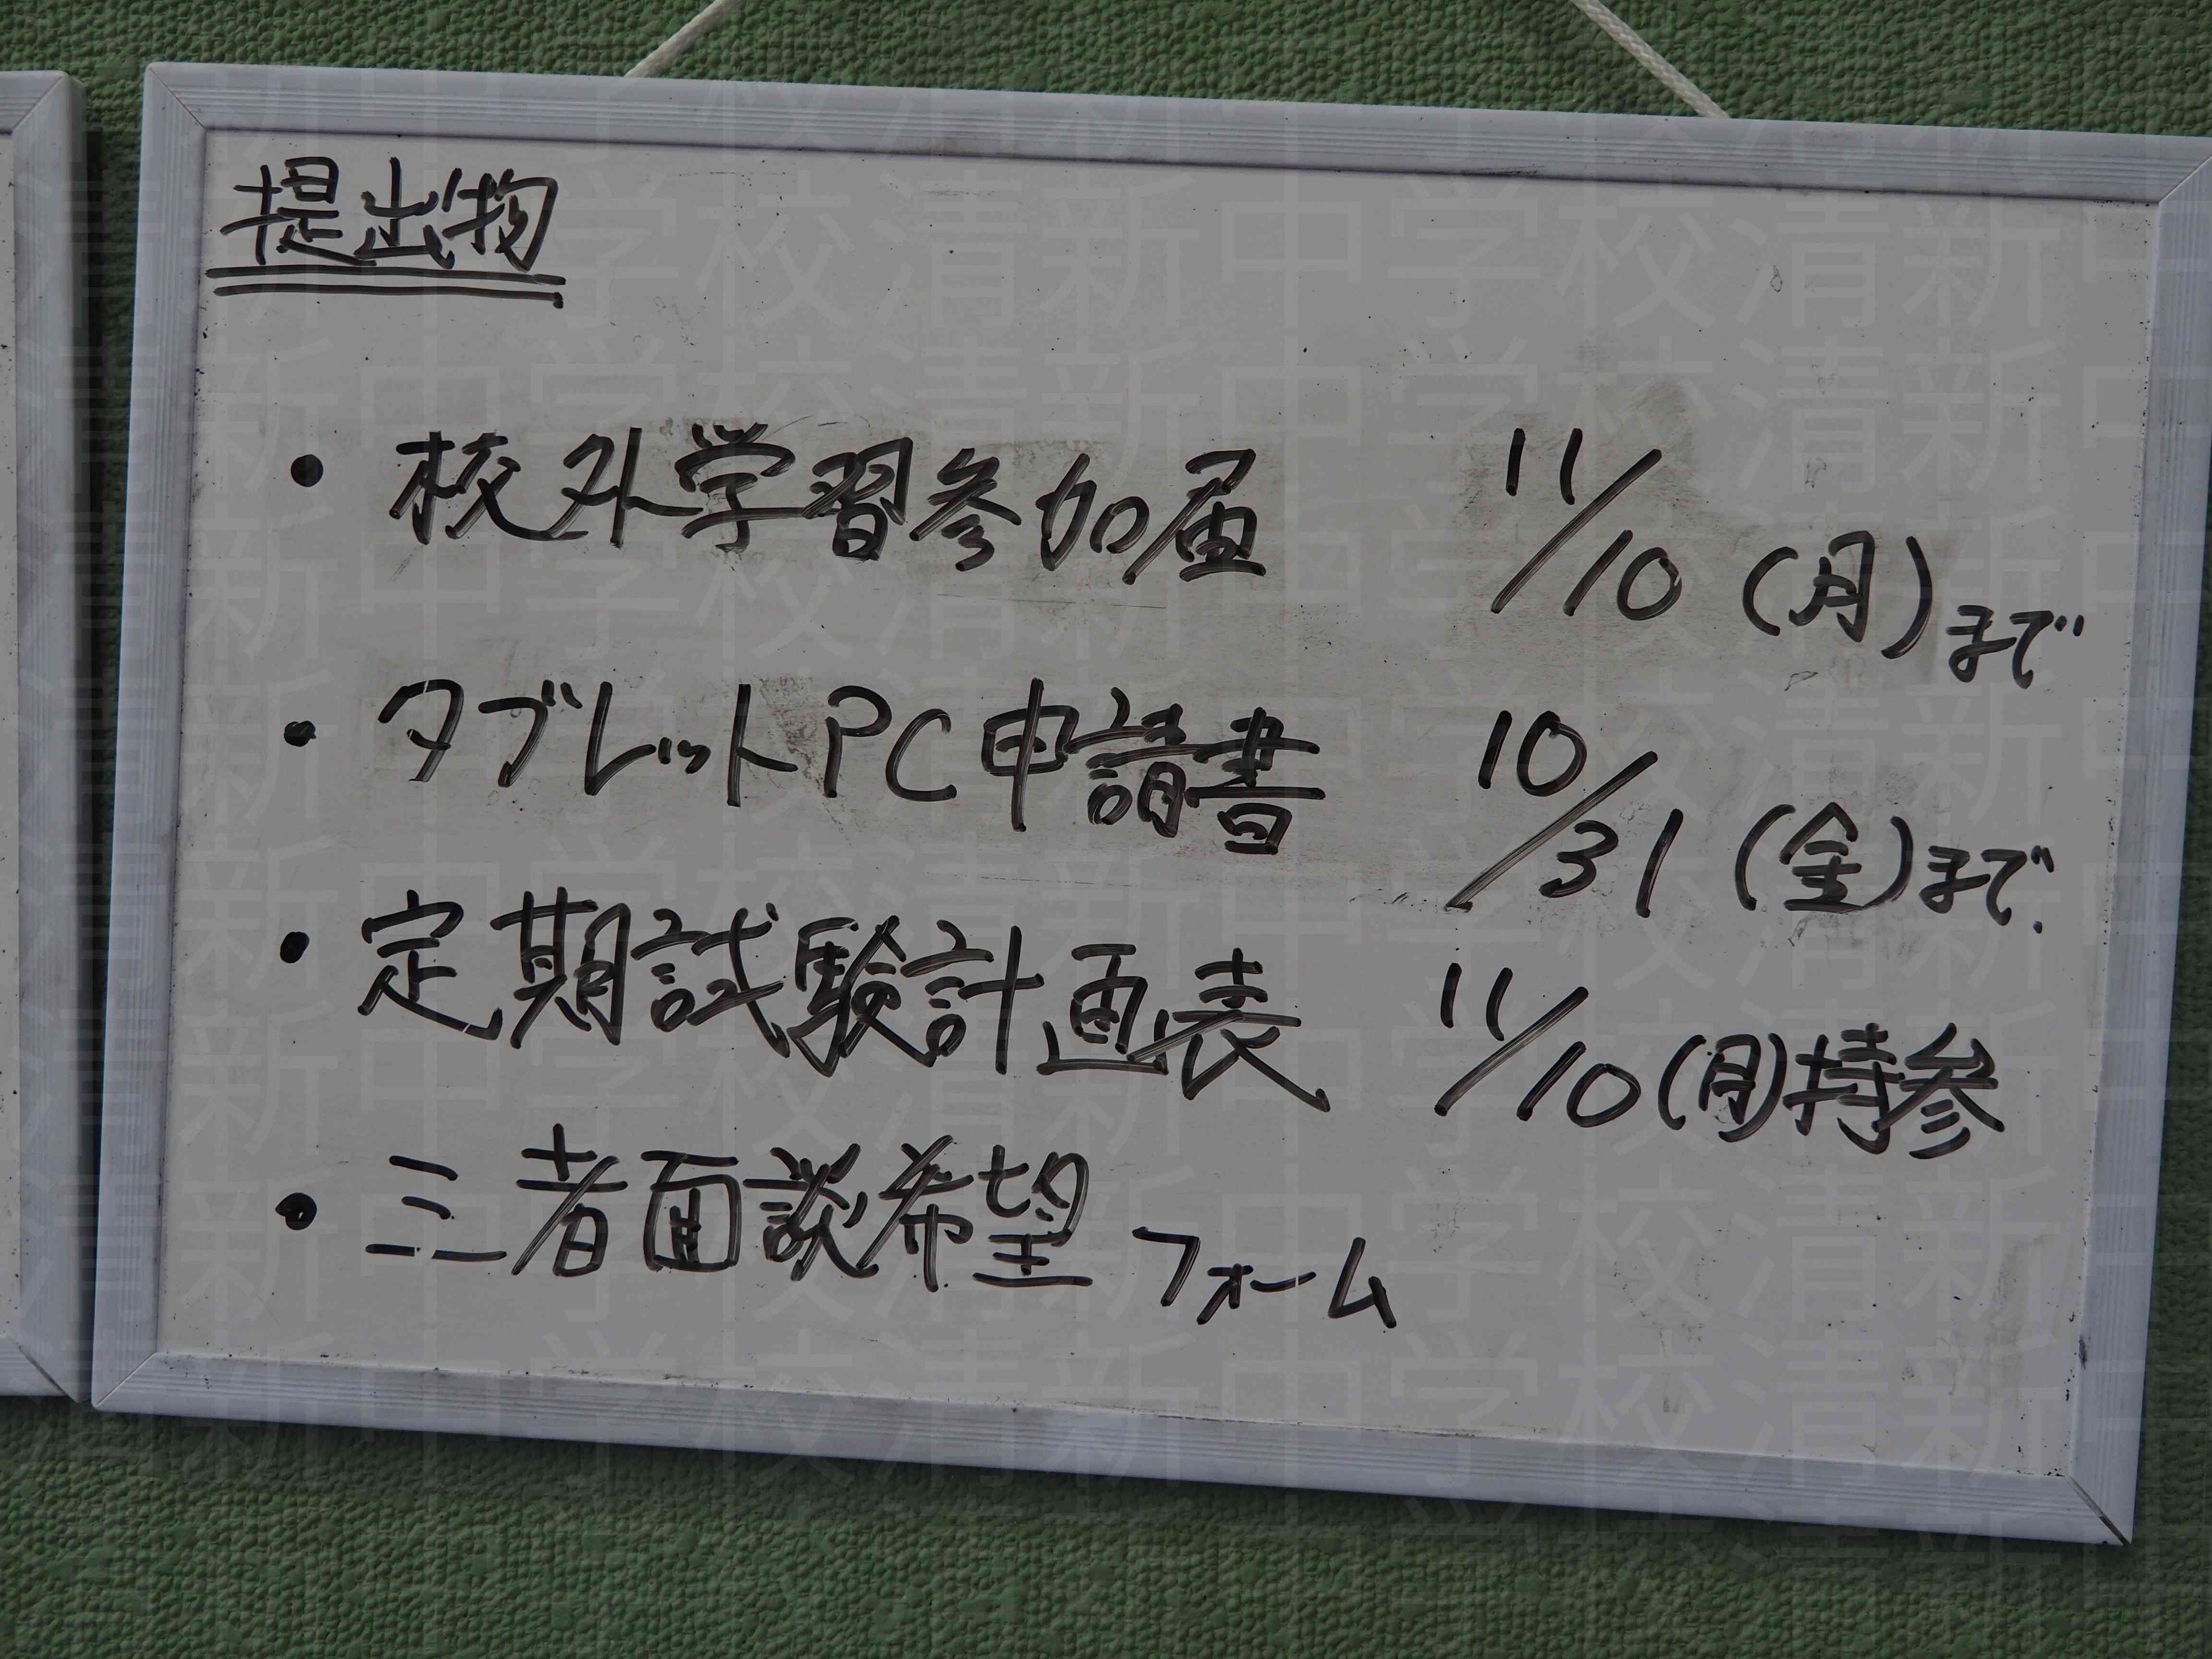 提出物
・校外学習参加届 11/10(月)まで
・タブレットPC申請書 10/31(金)まで.
・定期試験計画表 11/10(月)持参
・三者面談希望フォーム